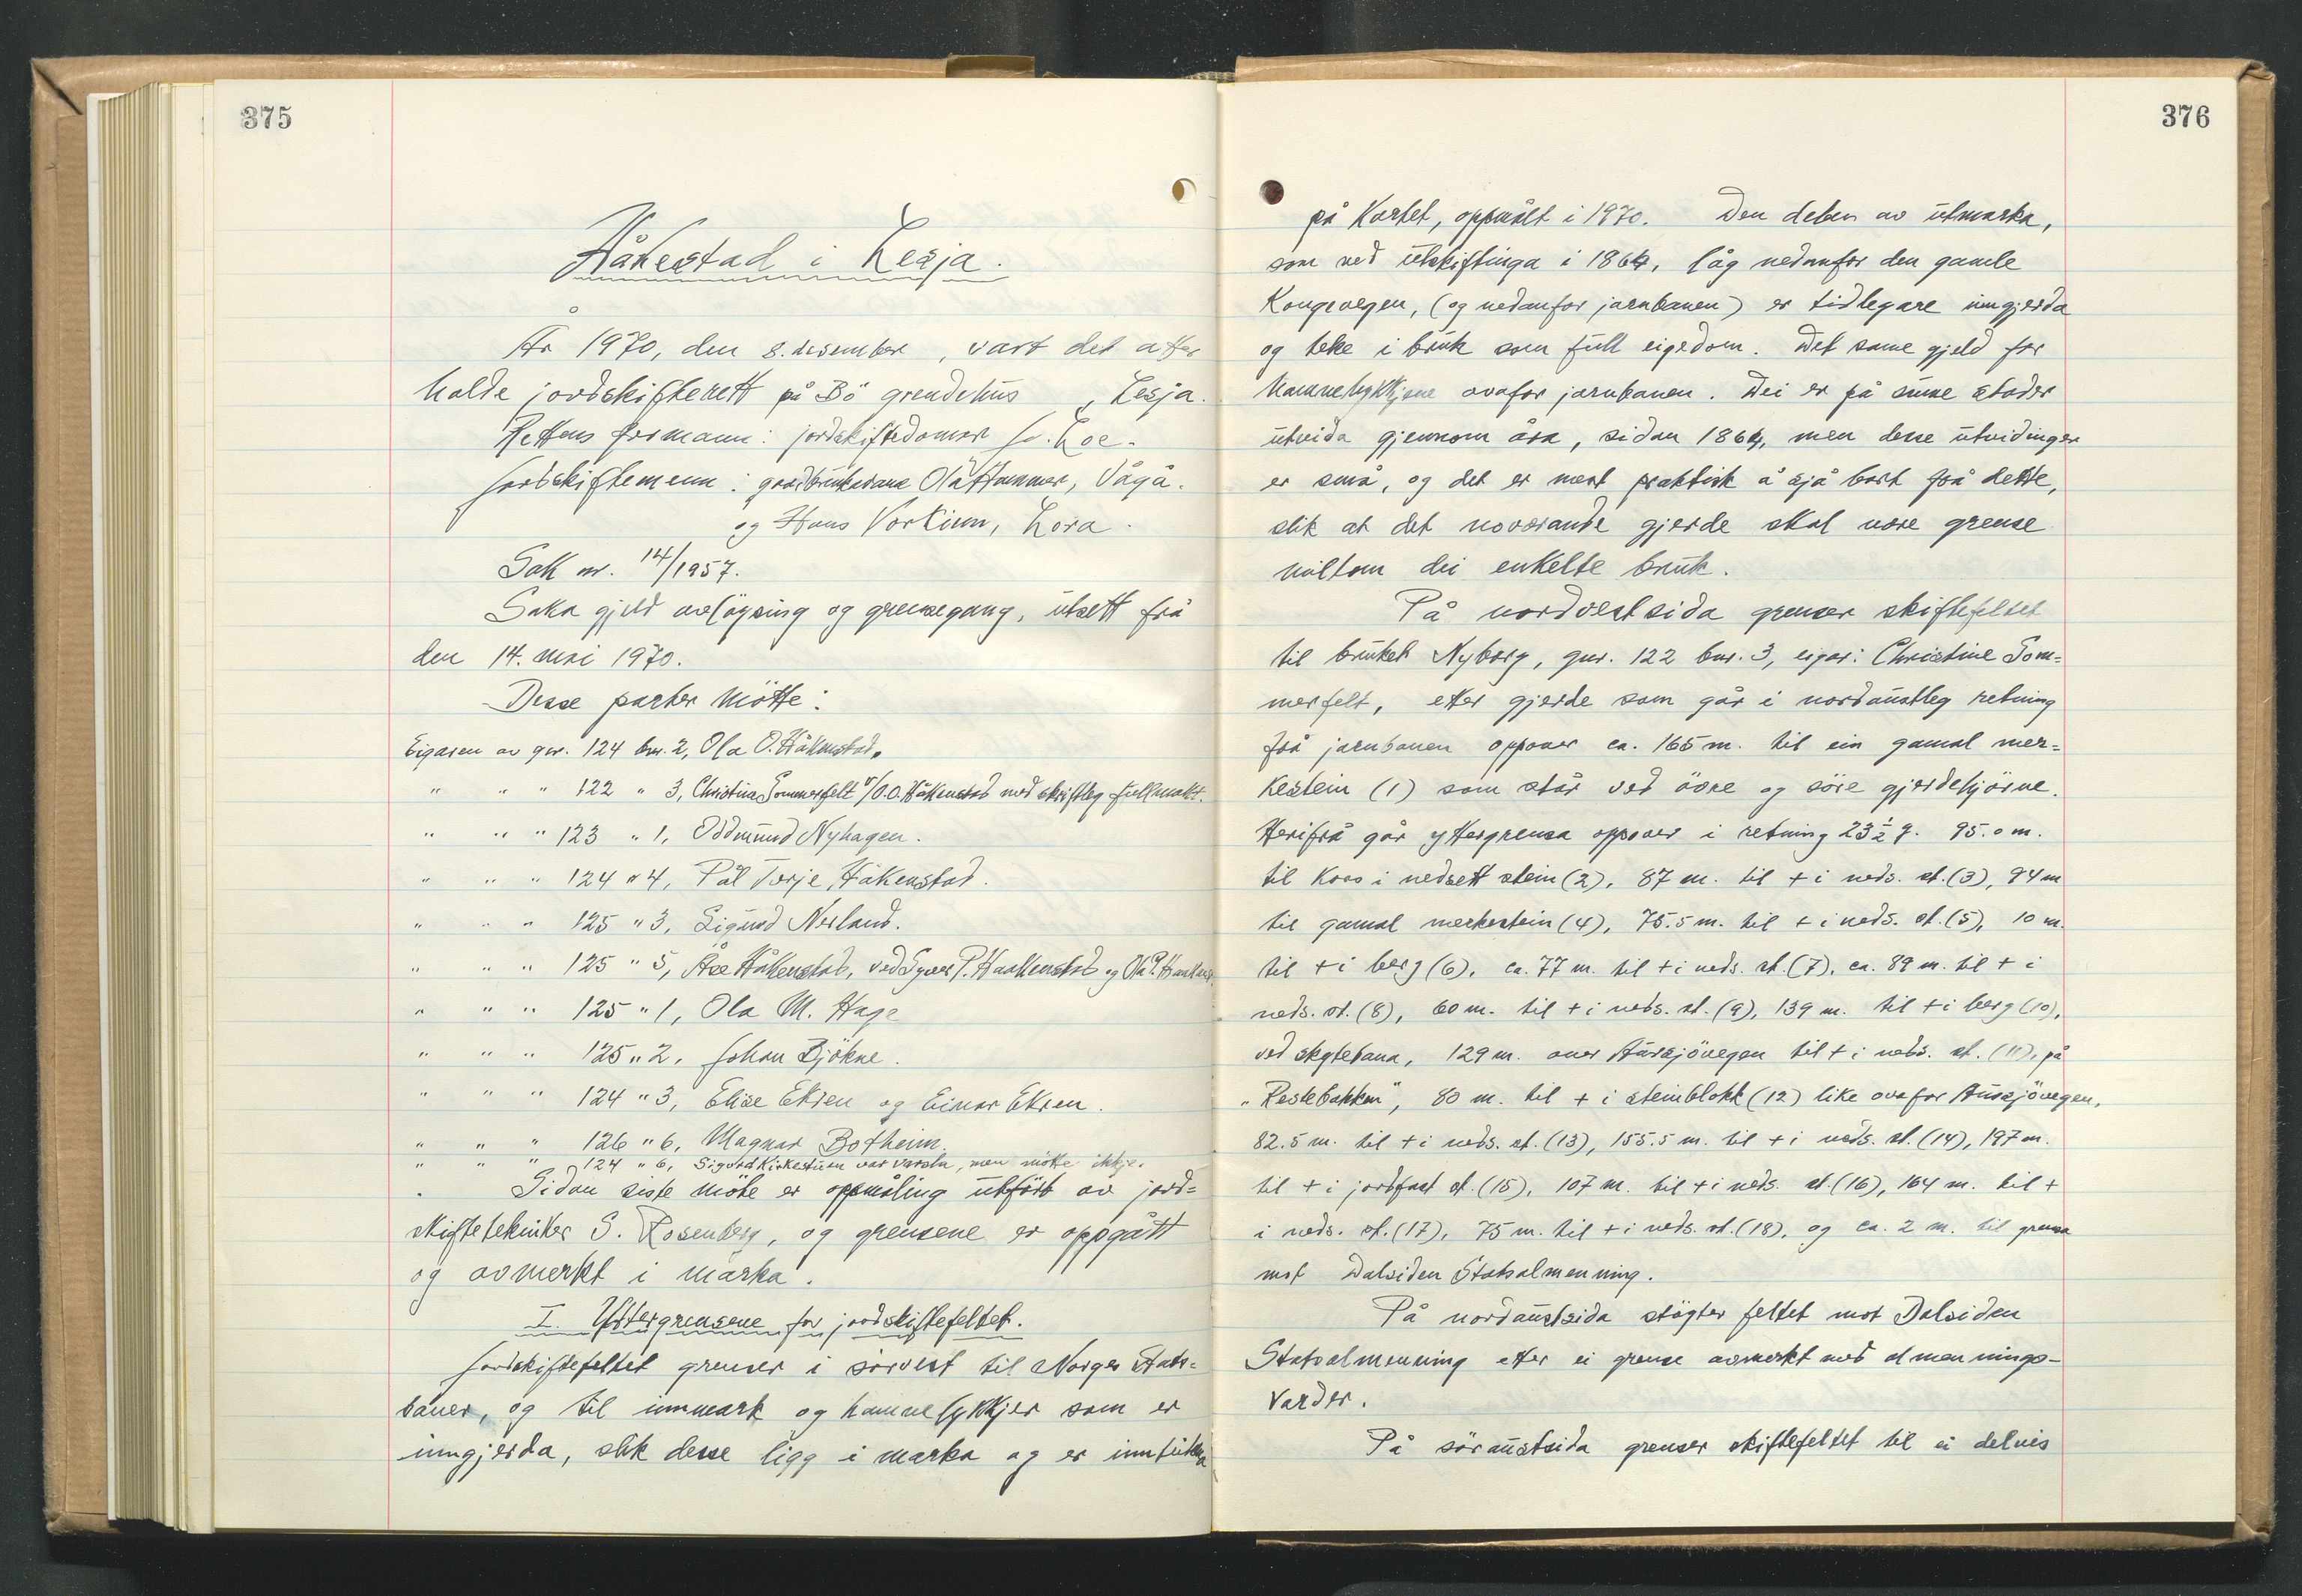 375
Håkestad i Lesja.
År 1970, den 8. desember, vart det atter
halde jordskifterett på Bö grendehus, Lesja.
Rettens formann: jordskiftedomar J. Loe.
Jordskiftemenn: gardbrukarane Ola Hammer, Vågå.
og Hans Vorkinn, Lora.
Sak nr. 14/1957.
Saka gjeld avløysing og grensegang, utsett frå
den 14. mai 1970.
Desse partar mötte:
Eigaren av gnr. 124 bnr. 2, Ola O. Håkenstad.
" " " 122 " 3, Christina Sommerfelt v/O.O. Håkenstad med skriftleg fullmakt.
" " " 123 " 1, Oddmund Nyhagen.
" " " 124 " 4, Pål Terje Håkenstad.
" " " 125 " 3, Sigurd Nerland.
" " " 125 " 5, Åse Håkenstad, ved Syver P. Haakenstad og Ola P. Haakens
" " " 125 " 1, Ola M. Hage
" " " 125 " 2, Johan Bjökne.
" " " 124 " 3, Elise Ekren og Einar Ekren.
" " " 126 " 6, Magnar Botheim.
" " " 124 " 6, Sigurd Kirkestuen var varsla, men mötte ikkje.
Sidan siste möte er oppmåling utfört av jord=
skiftetekniker S. Rosenberg, og grensene er oppgått
og avmerkt i marka.
I. Yttergrensene for jordskiftefeltet.
Jordskiftefeltet grenser i sörvest til Norges Stats=
baner, og til innmark og hamnelykkjer som er
inngjerda, slik desse ligg i marka og er inntekna
376
på kartet, oppmålt i 1970. Den delen av utmarka,
som ved utskiftinga i 1864, låg nedanfor den gamle
Kongevegen, (og nedanfor jarnbanen) er tidlegare inngjerda
og teke i bruk som full eigedom. Det same gjeld for
hamnelykkjene ovafor jarnbanen. Dei er på sume stader
utvida gjennom åra, sidan 1864, men desse utvidinger
er små, og det er mest praktisk å sjå bort frå dette,
slik at det noverande gjerde skal vere grense
millom dei enkelte bruk.
På nordvestsida grenser skiftefeltet
til bruket Nyborg, gnr. 122 bnr. 3, eigar: Christine Som=
merfelt, etter gjerde som går i nordaustleg retning
frå jarnbanen oppover ca. 165 m. til ein gamal mer=
kestein (1) som står ved övre og söre gjerdehjörne.
Herifrå går yttergrensa oppover i retning 23 1/2 g. 95.0 m.
til kross i nedsett stein (2), 87 m. til + i neds. st. (3), 94 m
til gamal merkestein (4), 75.5 m. til + i neds. st. (5), 10 m.
til + i berg (6), ca. 77 m. til + i neds. st. (7), ca. 89 m. til + i
neds. st. (8), 60 m. til + i neds. st. (9), 139 m. til + i berg (10),
ved skytebana, 129 m. over Aursjövegen til + i neds. st. (11), på
"Restebakken", 80 m. til + i steinblokk (12) like ovafor Aursjövegen,
82.5 m. til + i neds. st. (13), 155.5 m. til + i neds. st. (14), 197 m.
til + i jordfast st. (15), 107 m. til + i neds. st. (16), 164 m. til +
i neds. st. (17), 75 m. til + i neds. st. (18), og ca. 2 m. til grensa
mot Dalsiden Statsalmenning.
På nordaustsida stöyter feltet mot Dalsiden
Statsalmenning etter ei grense avmerkt med almennings-
varder.
På söraustsida grenser skiftefeltet til ei delvis